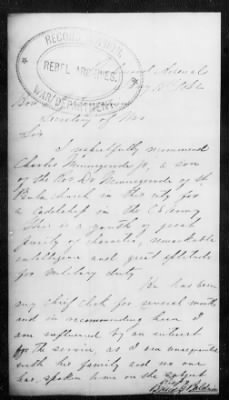 RECORD DIVISION
REBEL ARCHIVES.
WAR DEPARTMENT
Arsenal
Secretary of War
Sir
I respectfully recommend
Charles Minnigerode Jr, a son
of the Rev Dr Minnigerode of St
Pauls church in this city for
a Cadetship in the C.S. Army
This is a youth of great
purity of character, remarkable
intelligence and great aptitude
for military duty
He has been
my chief Clerk for several months
and in recommending him I
am influenced by an interest
for the service, as I am unacquainted
with his family and no one
has spoken to me on the subject
Briscoe G. Baldwin